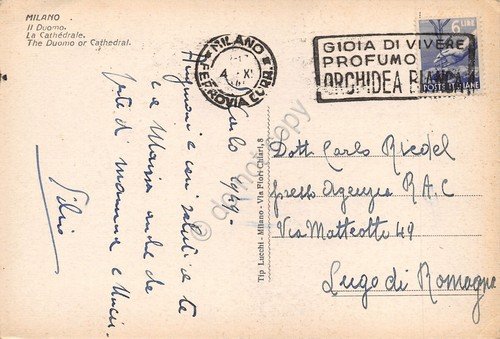 MILANO
Il Duomo.
La Cathédrale.
The Duomo or Cathedral.
MILANO
FERROVIA CORR.
GIOIA DI VIVERE
PROFUMO
ORCHIDEA BIANCA
6 LIRE
POSTE ITALIANE
Carlo
Auguroni e cari saluti a te
e a Marisa anche da
parte di mamma e
Silvio
Tip Lucchi - Milano - Via Fiori Chiari, 8
Dott. Carlo Riedel
presso Agenzia R.A.C
Via Matteotti 49
Lugo di Romagna